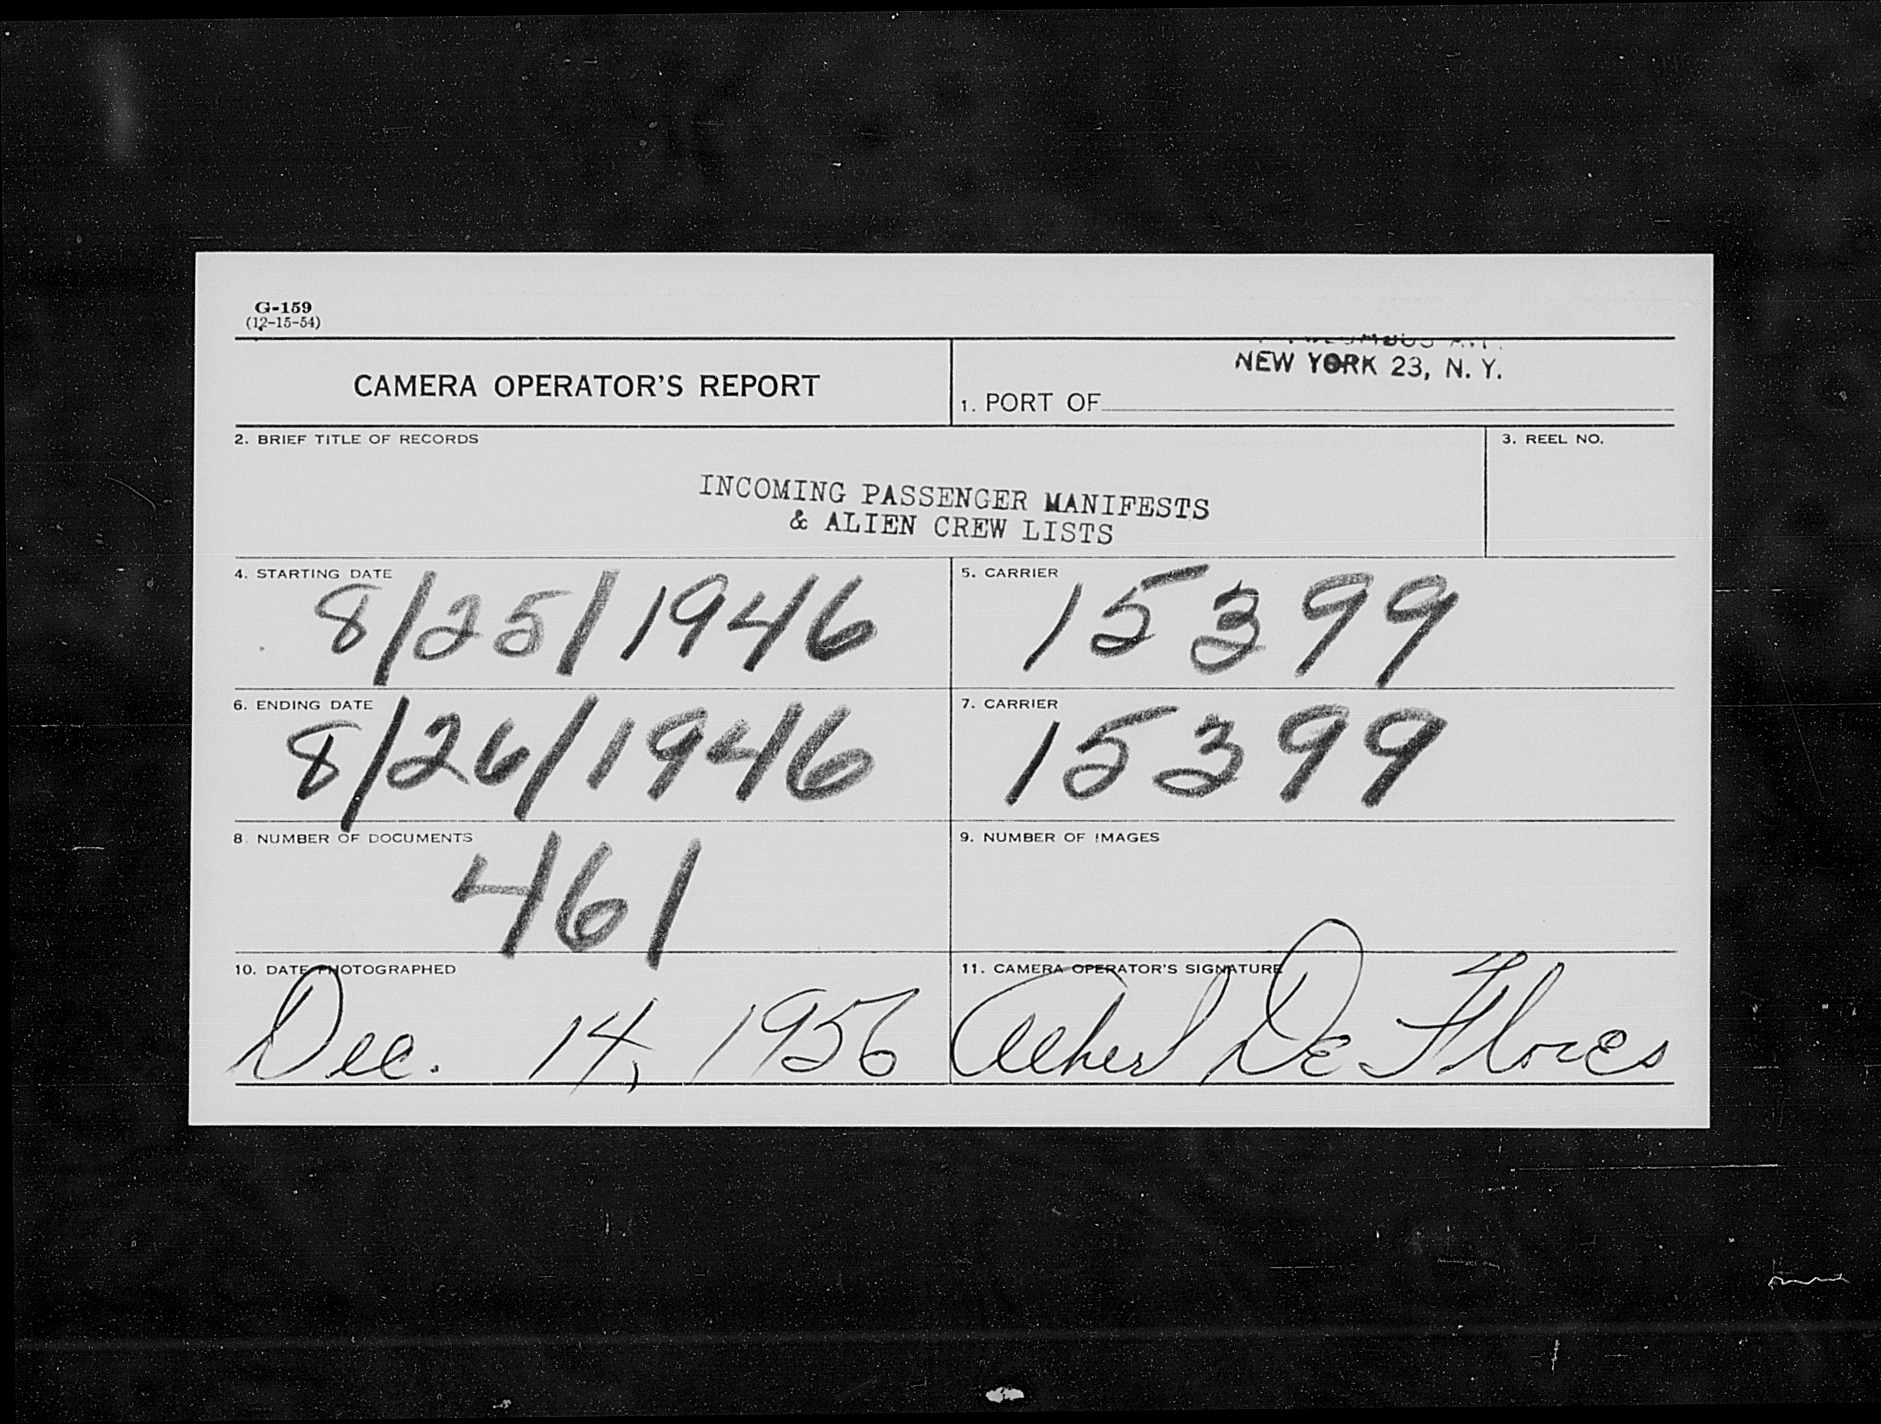 G-159
(12-15-54)
CAMERA OPERATOR'S REPORT
NEW YORK 23, N. Y.
1. PORT OF
2. BRIEF TITLE OF RECORDS
3. REEL NO.
INCOMING PASSENGER MANIFESTS
& ALIEN CREW LISTS
4. STARTING DATE
8/25/1946
5. CARRIER
15399
6. ENDING DATE
8/26/1946
7. CARRIER
15399
8. NUMBER OF DOCUMENTS
461
9. NUMBER OF IMAGES
10. DATE PHOTOGRAPHED
Dec. 14, 1956
11. CAMERA OPERATOR'S SIGNATURE
De Flores